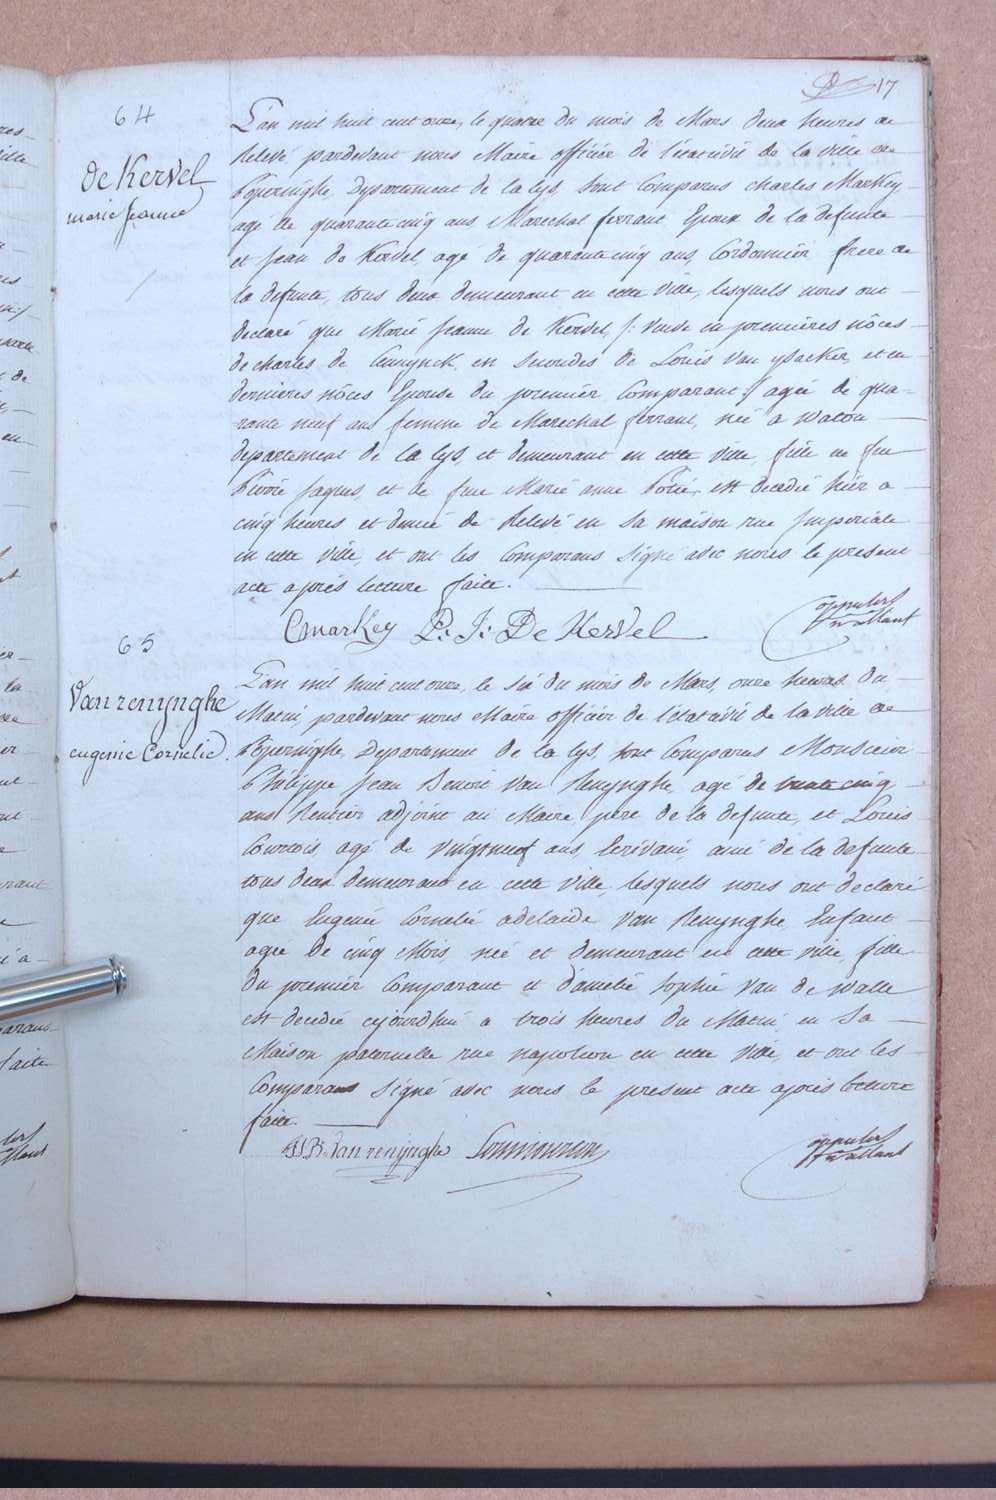 17
64
de Kervel
marie jeanne
L'an mil huit cent onze, le quatre du mois de Mars deux heures de
Relevé pardevant nous Maire officier de l'etat civil de la ville de
Poperinghe, Département de la Lys, sont Comparus charles Markey
agé de quarante cinq ans Marechal ferrant Epoux de la defunte
et Jean de Kervel agé de quarante cinq ans, Cordonnier frere de
la defunte, tous deux demeurant en cette ville, lesquels nous ont
declaré que Marie Jeanne de Kervel, /: Veuve en premieres nôces
de charles de en secondes de Louis Van ysacker, et en
dernieres nôces Epouse du premier Comparant :/ agée de qua-
rante neuf ans femme de Marechal ferrant, née a Watou
departement de la Lys, et demeurant en cette ville, fille de feu
Pierre Jaques, et de feue Marie anne est decedé hier a
cinq heures et demie de Relevé en sa maison rue Imperiale
en cette ville, et ont les Comparans signé avec nous le present
acte après lecture faite.
CMarkey P: J: De Kervel
65
Van renynghe
eugenie Cornelie.
L'an mil huit cent onze, le six du mois de Mars, onze heures du
Matin, pardevant nous Maire officier de l'état civil de la ville de
Poperinghe, Departement de la Lys, sont Comparus Monsieur
Philippe Jean Benoit Van Renynghe, agé de trente cinq
ans Rentier adjoint au Maire, père de la defunte, et Louis
Courtois, agé de vingtneuf ans, Ecrivain, ami de la defunte
tous deux demeurant en cette ville, lesquels nous ont declaré
que Eugenie Cornelie adelaide Van Renynghe, Enfant
agée de cinq Mois, née et demeurant en cette ville, fille
du premier Comparant et d'amelie Sophie Van de Walle
est decedée cejourdhui a trois heures du Matin, en sa
Maison paternelle rue napoleon en cette ville, et ont les
Comparans signé avec nous le present acte après lecture
faite.
PJB Van renynghe